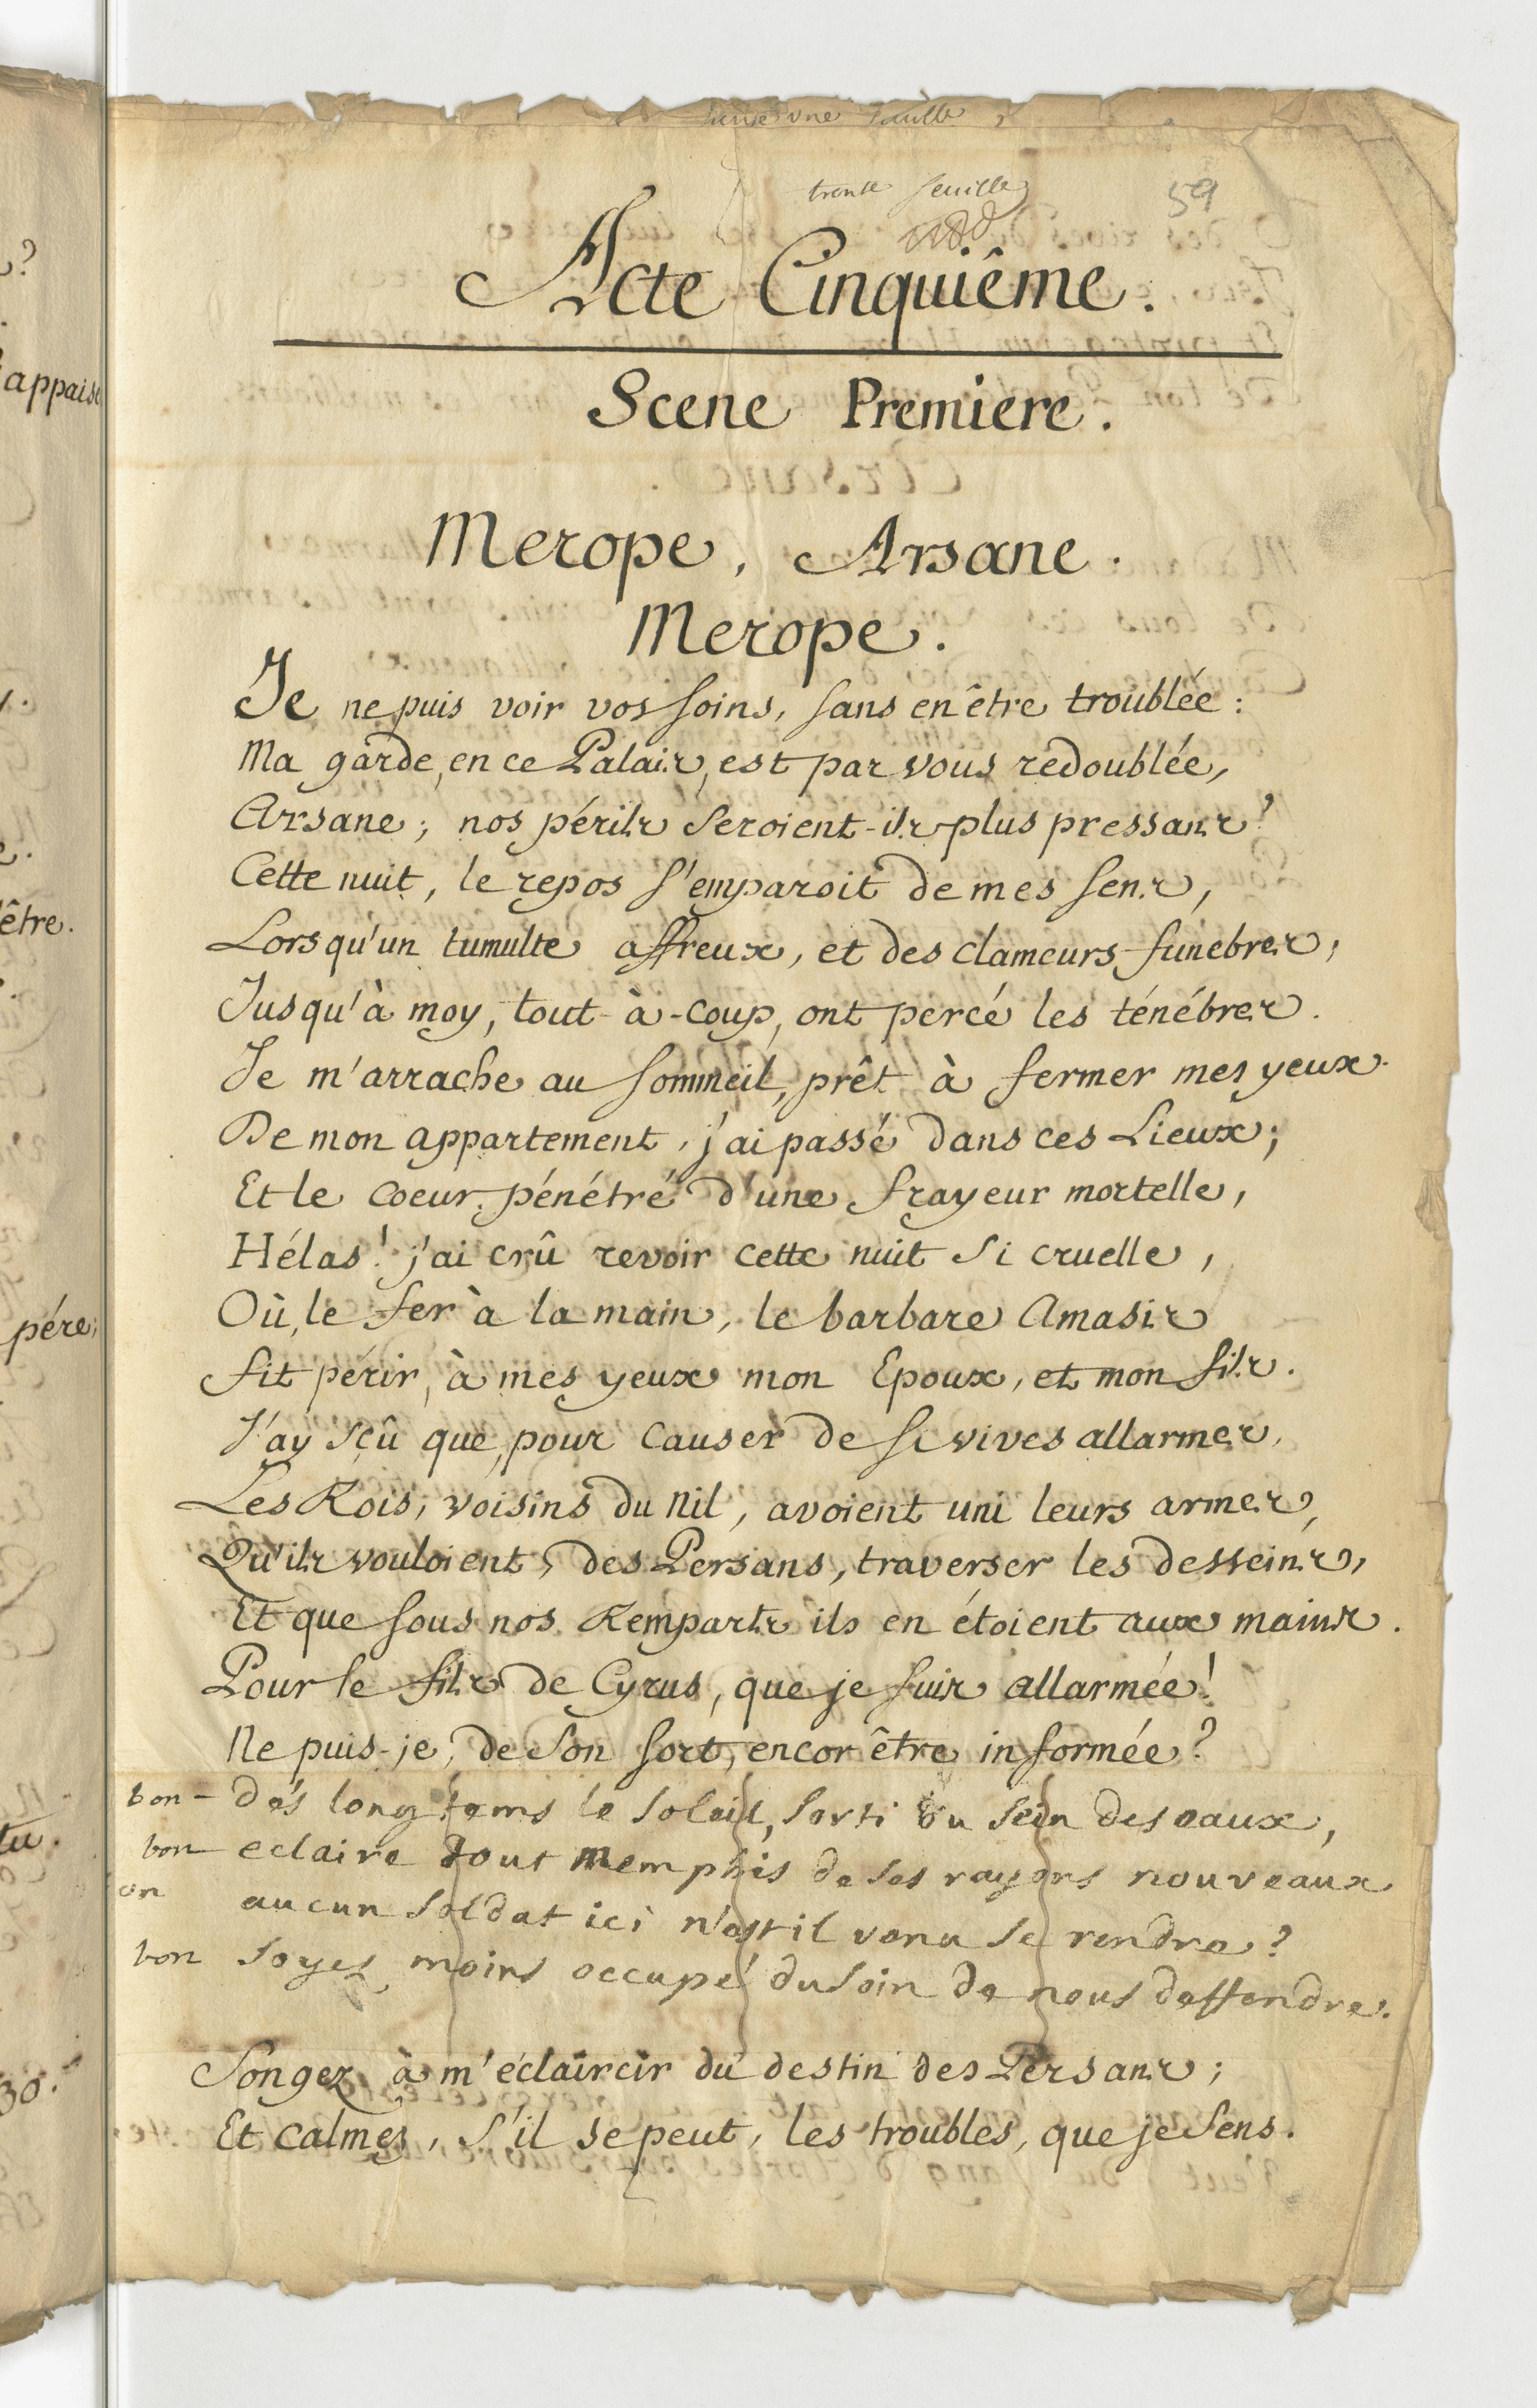 une feuille
trente feuille
59
Acte Cinquiême.
Scene Premiere.
Merope, Arsane.
Merope.
Je ne puis voir vos soins, sans en être troublée:
Ma garde, en ce Palais, est par vous redoublée,
Arsane; nos périls seroient-ils plus pressans?
Cette nuit, le repos s'emparoit de mes sens,
Lorsqu'un tumulte affreux, et des clameurs funebres,
Jusqu'à moy, tout-à-coup, ont percé les ténébres.
Je m'arrache au sommeil, prêt à fermer mes yeux.
De mon appartement, j'ai passé dans ces Lieux;
Et le coeur pénétré d'une frayeur mortelle,
Hélas! j'ai crû revoir cette nuit si cruelle,
Où, le fer à la main, le barbare Amasis
fit périr, à mes yeux mon Epoux, et mon fils.
J'ay sçû que, pour causer de si vives allarmes,
Les Rois, voisins du Nil, avoient uni leurs armes,
Qu'ils vouloient, des Persans, traverser les desseins,
Et que sous nos Remparts ils en étoient aux mains.
Pour le fils de Cyrus, que je suis allarmée!
Ne puis-je, de son sort, encor être informée?
bon - dés longtems le soleil, sorti du sein des eaux,
bon eclaire tout memphis de ses rayons nouveaux
on aucun soldat ici n'est il venu se rendre?
bon soyes moins occupé du soin de nous deffendre.
Songez à m'éclaircir du destin des Persans;
Et calmez, s'il se peut, les troubles, que je sens.
appaise
être.
pére,
tu.
30.